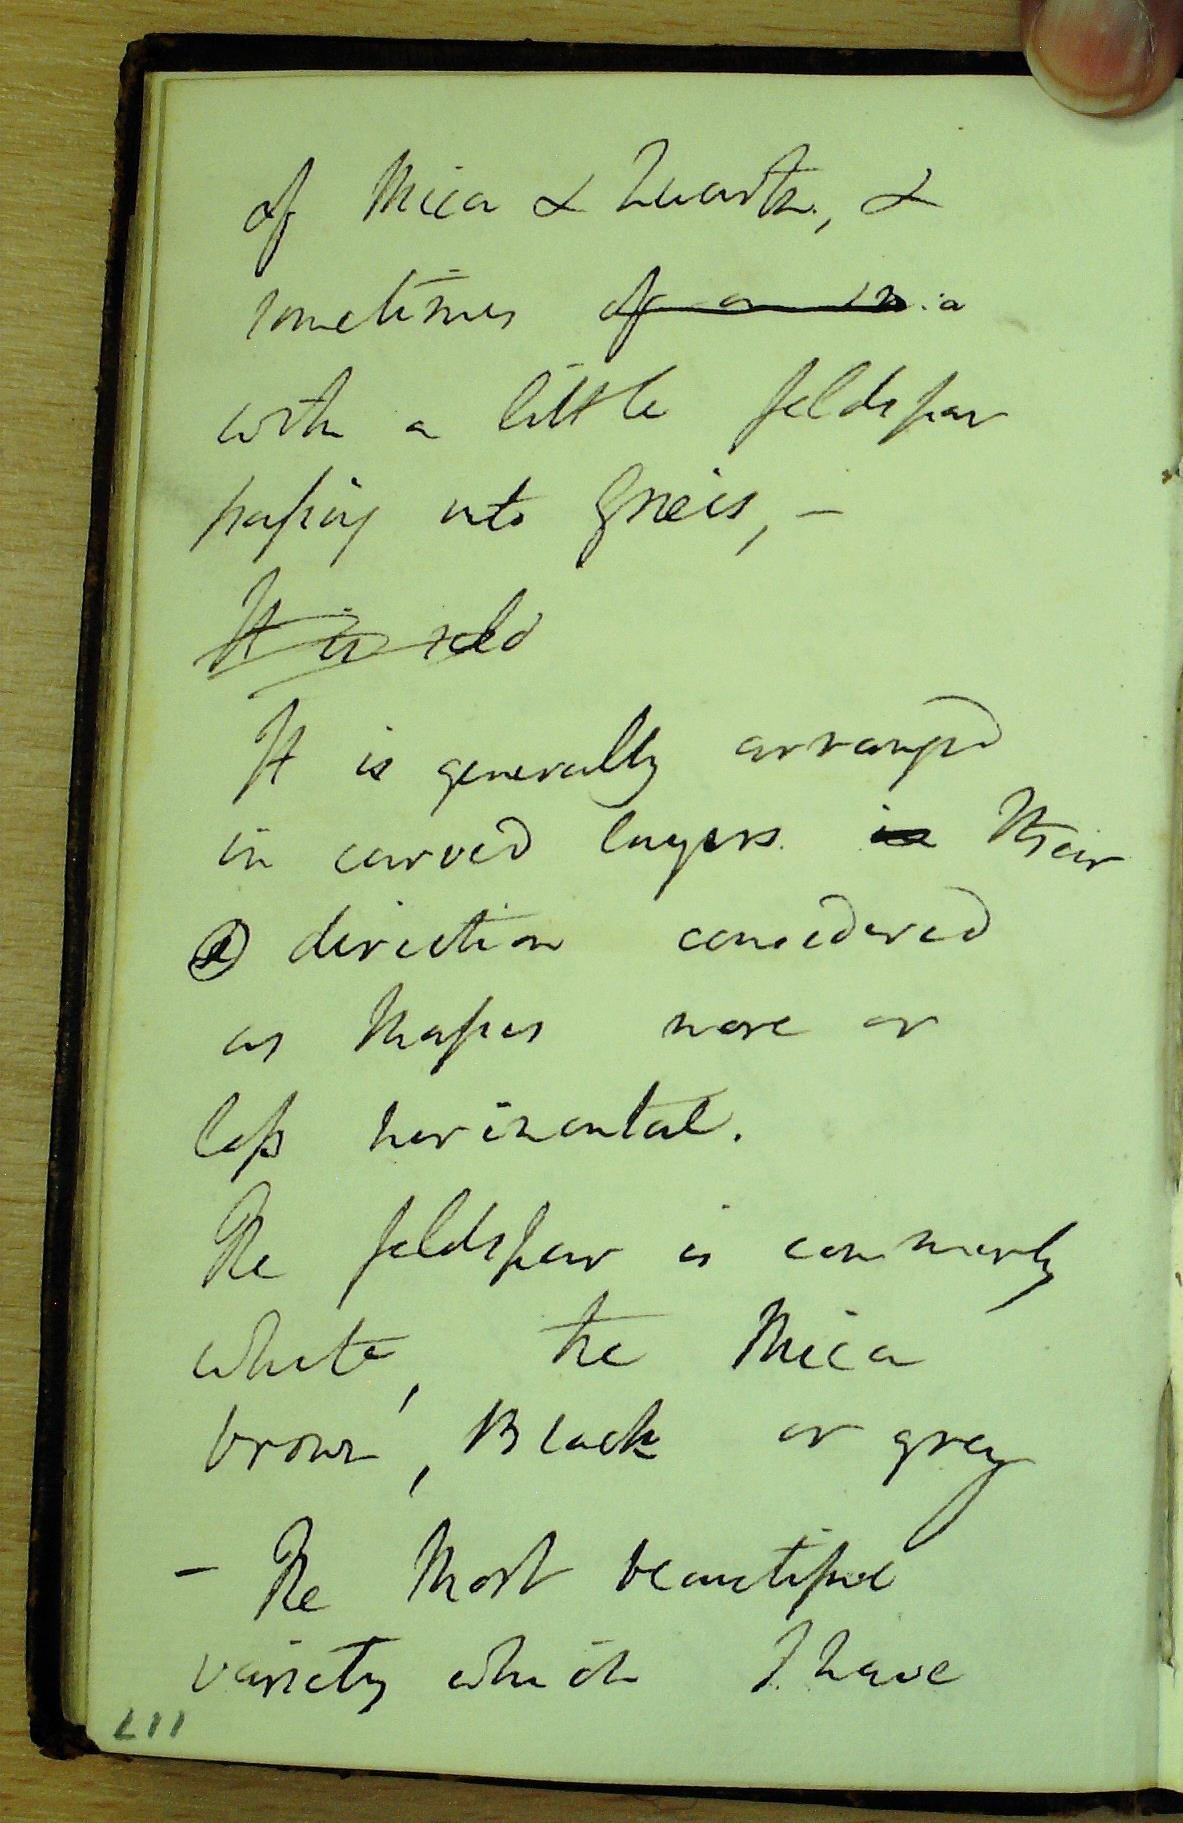 of Mica & Quartz, &
sometimes of a in a
with a little feldspar
passing into Gneis, -
It is
It is generally arranged
in curved layers is Their
direction considered
as Masses more or
less horizontal.
The feldspar is commonly
white, the Mica
brown, Black or grey
- The Most beautiful
variety which I have
117